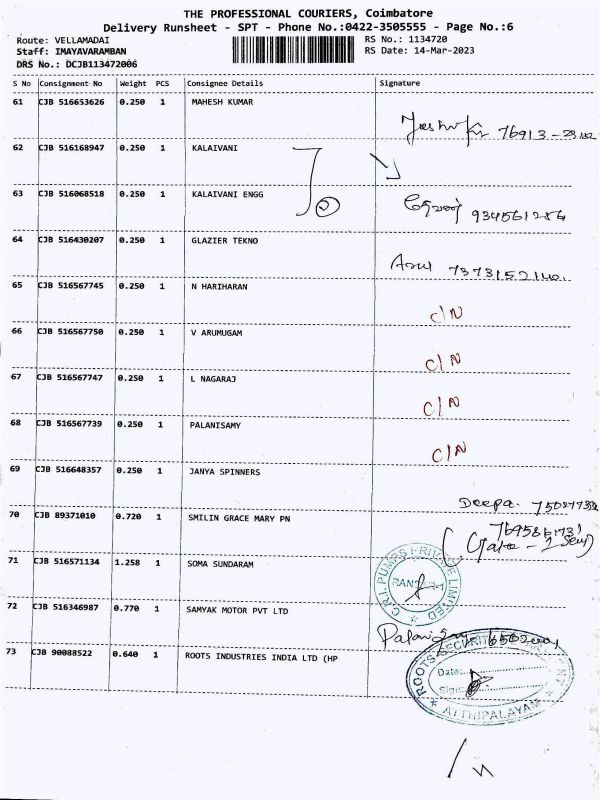 THE PROFESSIONAL COURIERS, Coimbatore
Delivery Runsheet - SPT - Phone No.:0422-3505555 - Page No.:6
Route: VELLAMADAI
RS No.: 1134720
Staff: IMAYAVARAMBAN
RS Date: 14-Mar-2023
DRS No.: DCJB113472006
S No Consignment No Weight PCS Consignee Details Signature
61 CJB 516653626 0.250 1 MAHESH KUMAR
62 CJB 516168947 0.250 1 KALAIVANI
63 CJB 516068518 0.250 1 KALAIVANI ENGG
64 CJB 516430207 0.250 1 GLAZIER TEKNO
65 CJB 516567745 0.250 1 N HARIHARAN
C/N
66 CJB 516567750 0.250 1 V ARUMUGAM
C/N
67 CJB 516567747 0.250 1 L NAGARAJ
C/N
68 CJB 516567739 0.250 1 PALANISAMY
C/N
69 CJB 516648357 0.250 1 JANYA SPINNERS
Deepa
70 CJB 89371010 0.720 1 SMILIN GRACE MARY PN
71 CJB 516571134 1.258 1 SOMA SUNDARAM
C.R.I. PUMPS PRIVATE LIMITED
72 CJB 516346987 0.770 1 SAMYAK MOTOR PVT LTD
73 CJB 90088522 0.640 1 ROOTS INDUSTRIES INDIA LTD (HP
ROOTS SECURITY
Date:
Sign:
ATTHIPALAYAM